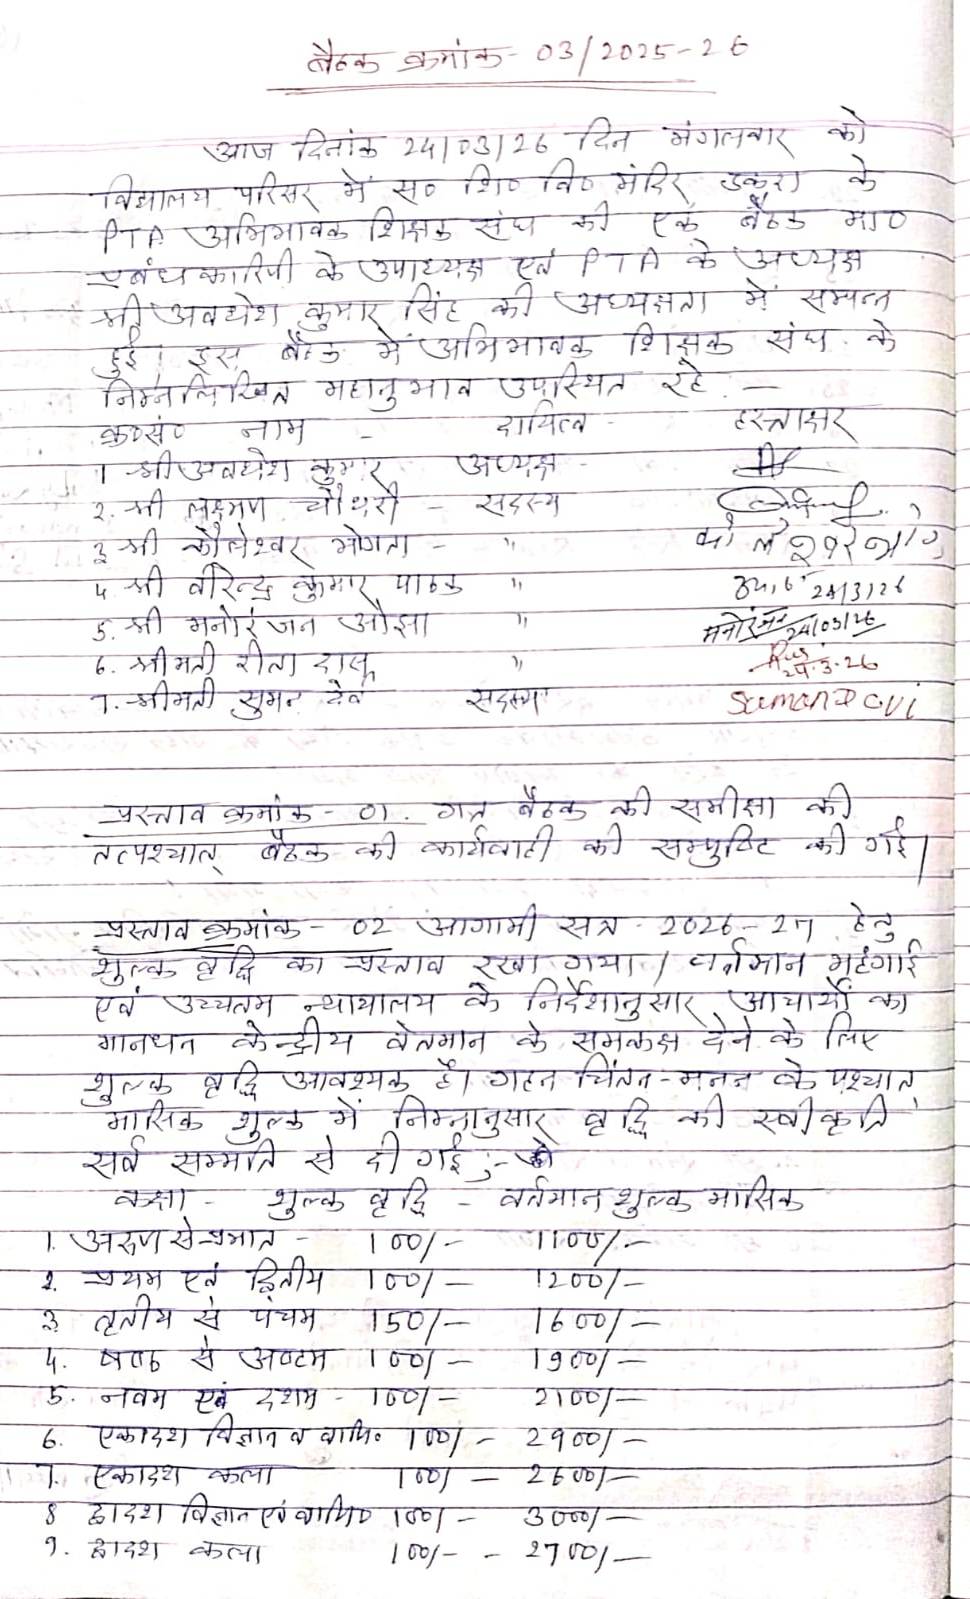 बैठक क्रमांक - 03/2025-26
आज दिनांक 24/03/26 दिन मंगलवार को
विद्यालय परिसर में स० शि० वि० मंदिर डकरा के
PTA अभिभावक शिक्षक संघ की एक बैठक मा०
प्रबंधकारिणी के उपाध्यक्ष एवं PTA के अध्यक्ष
श्री अवधेश कुमार सिंह की अध्यक्षता में सम्पन्न
हुई। इस बैठक में अभिभावक शिक्षक संघ के
निम्नलिखित महानुभाव उपस्थित रहे :-
क्र०सं० नाम - दायित्व - हस्ताक्षर
1 श्री अवधेश कुमार अध्यक्ष -
2. श्री लक्ष्मण चौधरी - सदस्य
3 श्री कौलेश्वर भोगता - "
4. श्री वीरेन्द्र कुमार पाठक " 24/3/26
5. श्री मनोरंजन ओझा " मनोरंजन 24/03/26
6. श्रीमती रीता " 24.3.26
7. श्रीमती सुमन देवी सदस्या Suman Devi
प्रस्ताव क्रमांक - 01. गत बैठक की समीक्षा की
तत्पश्चात् बैठक की कार्यवाही की सम्पुष्टि की गई।
प्रस्ताव क्रमांक - 02 आगामी सत्र - 2026-27 हेतु
शुल्क वृद्धि का प्रस्ताव रखा गया। वर्तमान महंगाई
एवं उच्चतम न्यायालय के निर्देशानुसार आचार्यों का
मानधन केन्द्रीय वेतमान के समकक्ष देने के लिए
शुल्क वृद्धि आवश्यक है। गहन चिंतन-मनन के पश्चात्
मासिक शुल्क में निम्नानुसार वृद्धि की स्वीकृति
सर्व सम्मति से दी गई :-
कक्षा - शुल्क वृद्धि - वर्तमान शुल्क मासिक
1. अरुण से प्रभात - 100/- 1100/-
2. प्रथम एवं द्वितीय 100/- 1200/-
3 तृतीय से पंचम 150/- 1600/-
4. षष्ठ से अष्टम 100/- 1900/-
5. नवम एवं दशम - 100/- 2100/-
6. एकादश विज्ञान व वाणि० 100/- 2900/-
7. एकादश कला 100/- 2600/-
8 द्वादश विज्ञान एवं वाणि० 100/- 3000/-
9. द्वादश कला 100/- - 2700/-